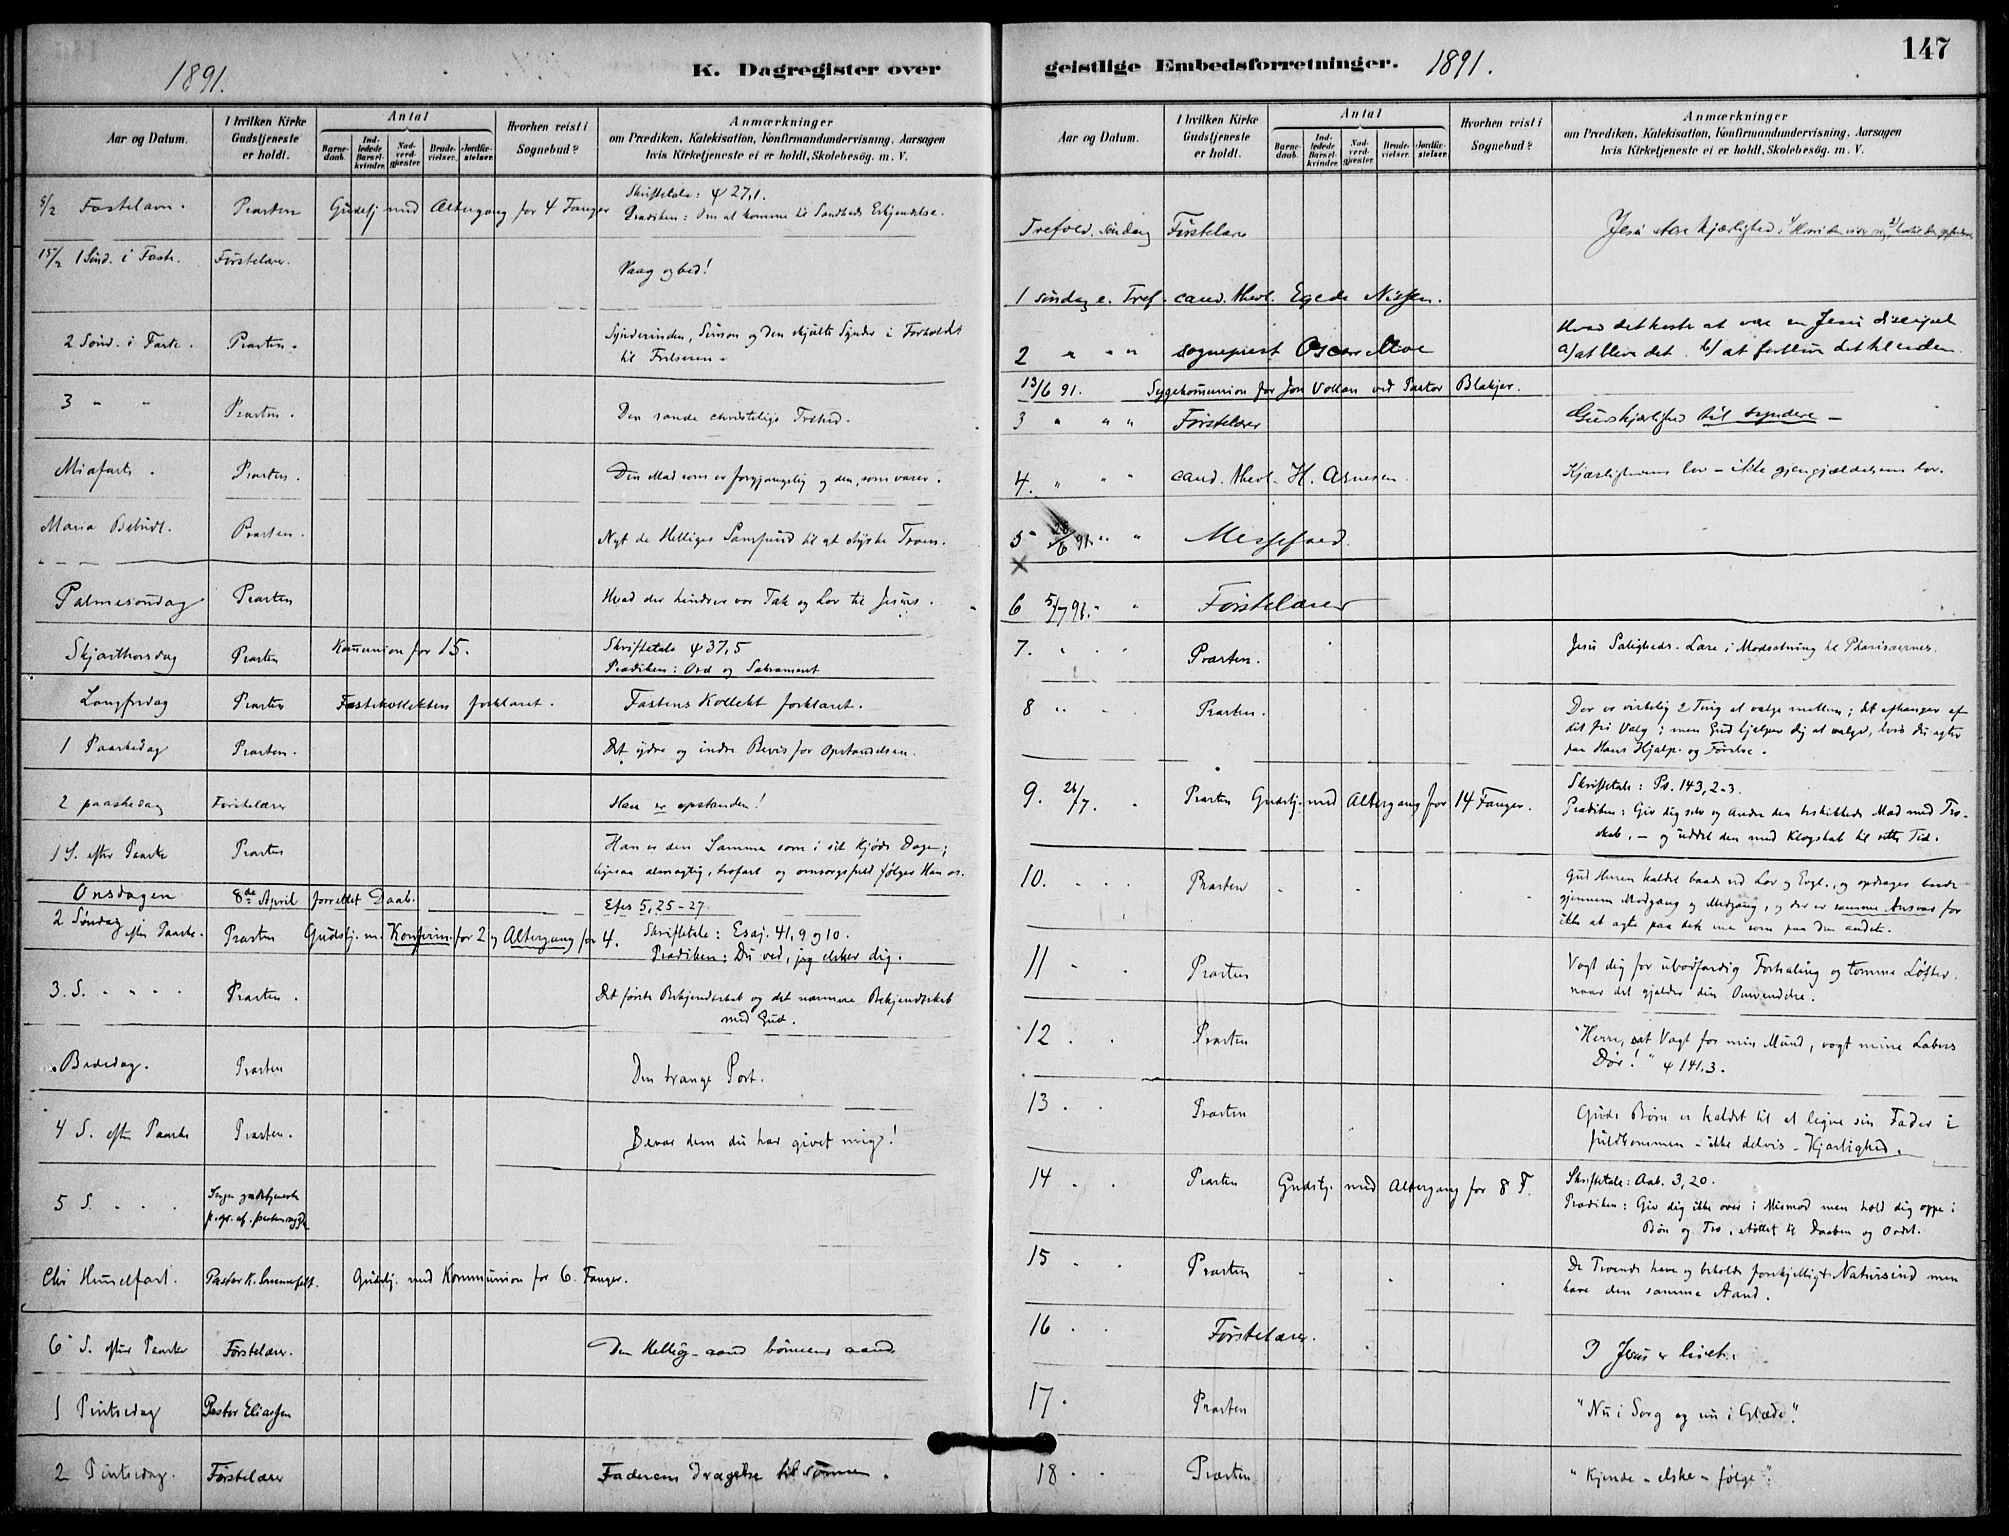 1891.
K. Dagregister over
Aar og Datum.
I hvilken Kirke Gudstjeneste er holdt.
Antal
Barnedaab.
Indledede Barselkvinder.
Nadverdgjæster
Brudevielser.
Jordfæstelser.
Hvorhen reist i Sognebud?
Anmærkninger
om Prædiken, Katekisation, Konfirmandundervisning, Aarsagen
hvis Kirketjeneste ei er holdt, Skolebesög. m. V.
8/2 Fastelavn. Præsten Gudstj. med Altergang for 4 Fanger Skriftetale: ψ 27,1.
Prædiken: Om at komme til Sandheds Erkjendelse.
15/2 1 Sønd. i Faste. Førstelærer. Vaag og bed!
2 Sønd. i Faste. Præsten. Synderinden, Simon og den skjulte Synder i Forholdet
til Frelseren.
3 " " Præsten. Den sande christelige Frihed.
Midfaste. Præsten. Den Mad som er forgjængelig og den, som varer.
Maria Bebudl. Præsten. Nyt de Helliges Samfund til at styrke Troen.
Palmesøndag Præsten Hvad der hindrer vor Tak og Lov til Jesus.
Skjærthorsdag Præsten Kommunion for 15. Skriftetale ψ 37,5
Prædiken: Ord og Sakrament
Langfredag Præsten Fastekollekten forklaret. Fastens Kollekt forklaret.
1 Paaskedag Præsten. Det ydre og indre Bevis for Opstandelsen.
2 paaskedag Førstelærer Han er opstanden!
1 S. efter Paaske Præsten Han er den Samme som i sit Kjøds Dage;
ligesaa almægtig, trofast og omsorgsfuld følger Han os.
Onsdagen 8de April forrettet Daab. Efes 5,25-27
2 Søndag efter Paaske. Præsten Gudstj. m. Konfirm. for 2 og Altergang for 4. Skriftetale: Esaj. 41, 9 og 10.
Prædiken: Du ved, jeg elsker dig.
3. S. " " " Præsten. Det første Bekjendtskab og det nærmere Bekjendtskab
med Gud.
Bededag. Præsten Den trange Port.
4 S. efter Paaske Præsten. Bevar dem du har givet mig!
5 S. . . . Ingen gudstjeneste
p. gr. af præstens
Chr Himmelfart. Pastor K. Gudstj. med Kommunion for 6 Fanger.
6 S. efter Paaske Førstelærer. Den Hellig-aand bønnens aand
1 Pintsedag Pastor Eliassen
2 Pintsedag. Førstelærer Faderens dragelse til sønnen.
geistlige Embedsforretninger. 1891.
147
Aar og Datum.
I hvilken Kirke Gudstjeneste er holdt.
Antal
Barnedaab.
Indledede Barselkvinder.
Nadverdgjæster
Brudevielser.
Jordfæstelser.
Hvorhen reist i Sognebud?
Anmærkninger
om Prædiken, Katekisation, Konfirmandundervisning, Aarsagen
hvis Kirketjeneste ei er holdt, Skolebesög. m. V.
Trefold. søndag Førstelærer Jesu store kjærlighed.
1 søndag e. Tref. cand. theol. Egede Nissen.
2 " " " sogneprest Oscar Moe Hvad det koste at være en Jesu discipel
a) at blive det. b) at forblive det til enden.
13/6 91. Sygekommunion for Jon Vollan ved Pastor Blakjer.
3 " " " Førstelærer Guds kjærlighed til syndere –
4. " " " cand. theol. H. Arnesen. Kjærlighedens lov – ikke gjengjældelsens lov.
5 " 28/6 91. " " Messefald.
6 5/7 91. " " Førstelærer
7. " . . Præsten. Jesu Saligheds-Lære i Modsætning til Pharisæernes.
8 " . . Præsten. Der er virkelig 2 Ting at vælge mellem; det afhænger af
dit fri Valg; men Gud hjælper dig at vælge, hvis du agter
paa Hans Hjælp og Førelse.
9. 26/7. " Præsten Gudstj. med Altergang for 14 Fanger. Skriftetale: Ps. 143,2-3.
Prædiken: Giv dig selv og Andre den beskikkede Mad med Troskab, – og uddel den med Klogskab til rette Tid.
10. . . Præsten Gud Herren kaldet baade ved Lov og Evgl., og opdrager baade
gjennem Modgang og Medgang, og der er samme Ansvar for
ikke at agte paa det ene som paa den andet.
11 . . Præsten Vogt dig for ubodfærdig Forhaling og tomme Løfter,
naar det gjælder din Omvendelse.
12 . . Præsten "Herre, sæt Vagt for min Mund, vogt mine Læbers
Dør!" ψ 141,3.
13 . . Præsten Guds Børn er kaldet til at ligne sin Fader i
fuldkommen – ikke delvis – Kjærlighed.
14 . . Præsten Gudstj. med Altergang for 8 F. Skriftetale: Aab. 3,20.
Prædiken: Giv dig ikke over i Mismod men hold dig oppe i
Bøn og Tro, støttet til Daaben og Ordet.
15 . . Præsten De Troende have og beholde forskjelligt Natursind men
have den samme Aand.
16 . . Førstelærer. I Jesus er livet.
17 . Præsten "Nu i Sorg og nu i Glæde".
18 . . Præsten "Kjende – elske – følge".